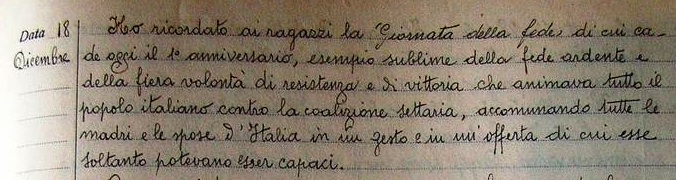 Data 18 Dicembre
Ho ricordato ai ragazzi la Giornata della fede, di cui ca-
de oggi il 1º anniversario, esempio sublime della fede ardente e
della fiera volontà di resistenza e di vittoria che animava tutto il
popolo italiano contro la coalizione settaria, accomunando tutte le
madri e le spose d'Italia in un gesto e in un'offerta di cui esse
soltanto potevano esser capaci.